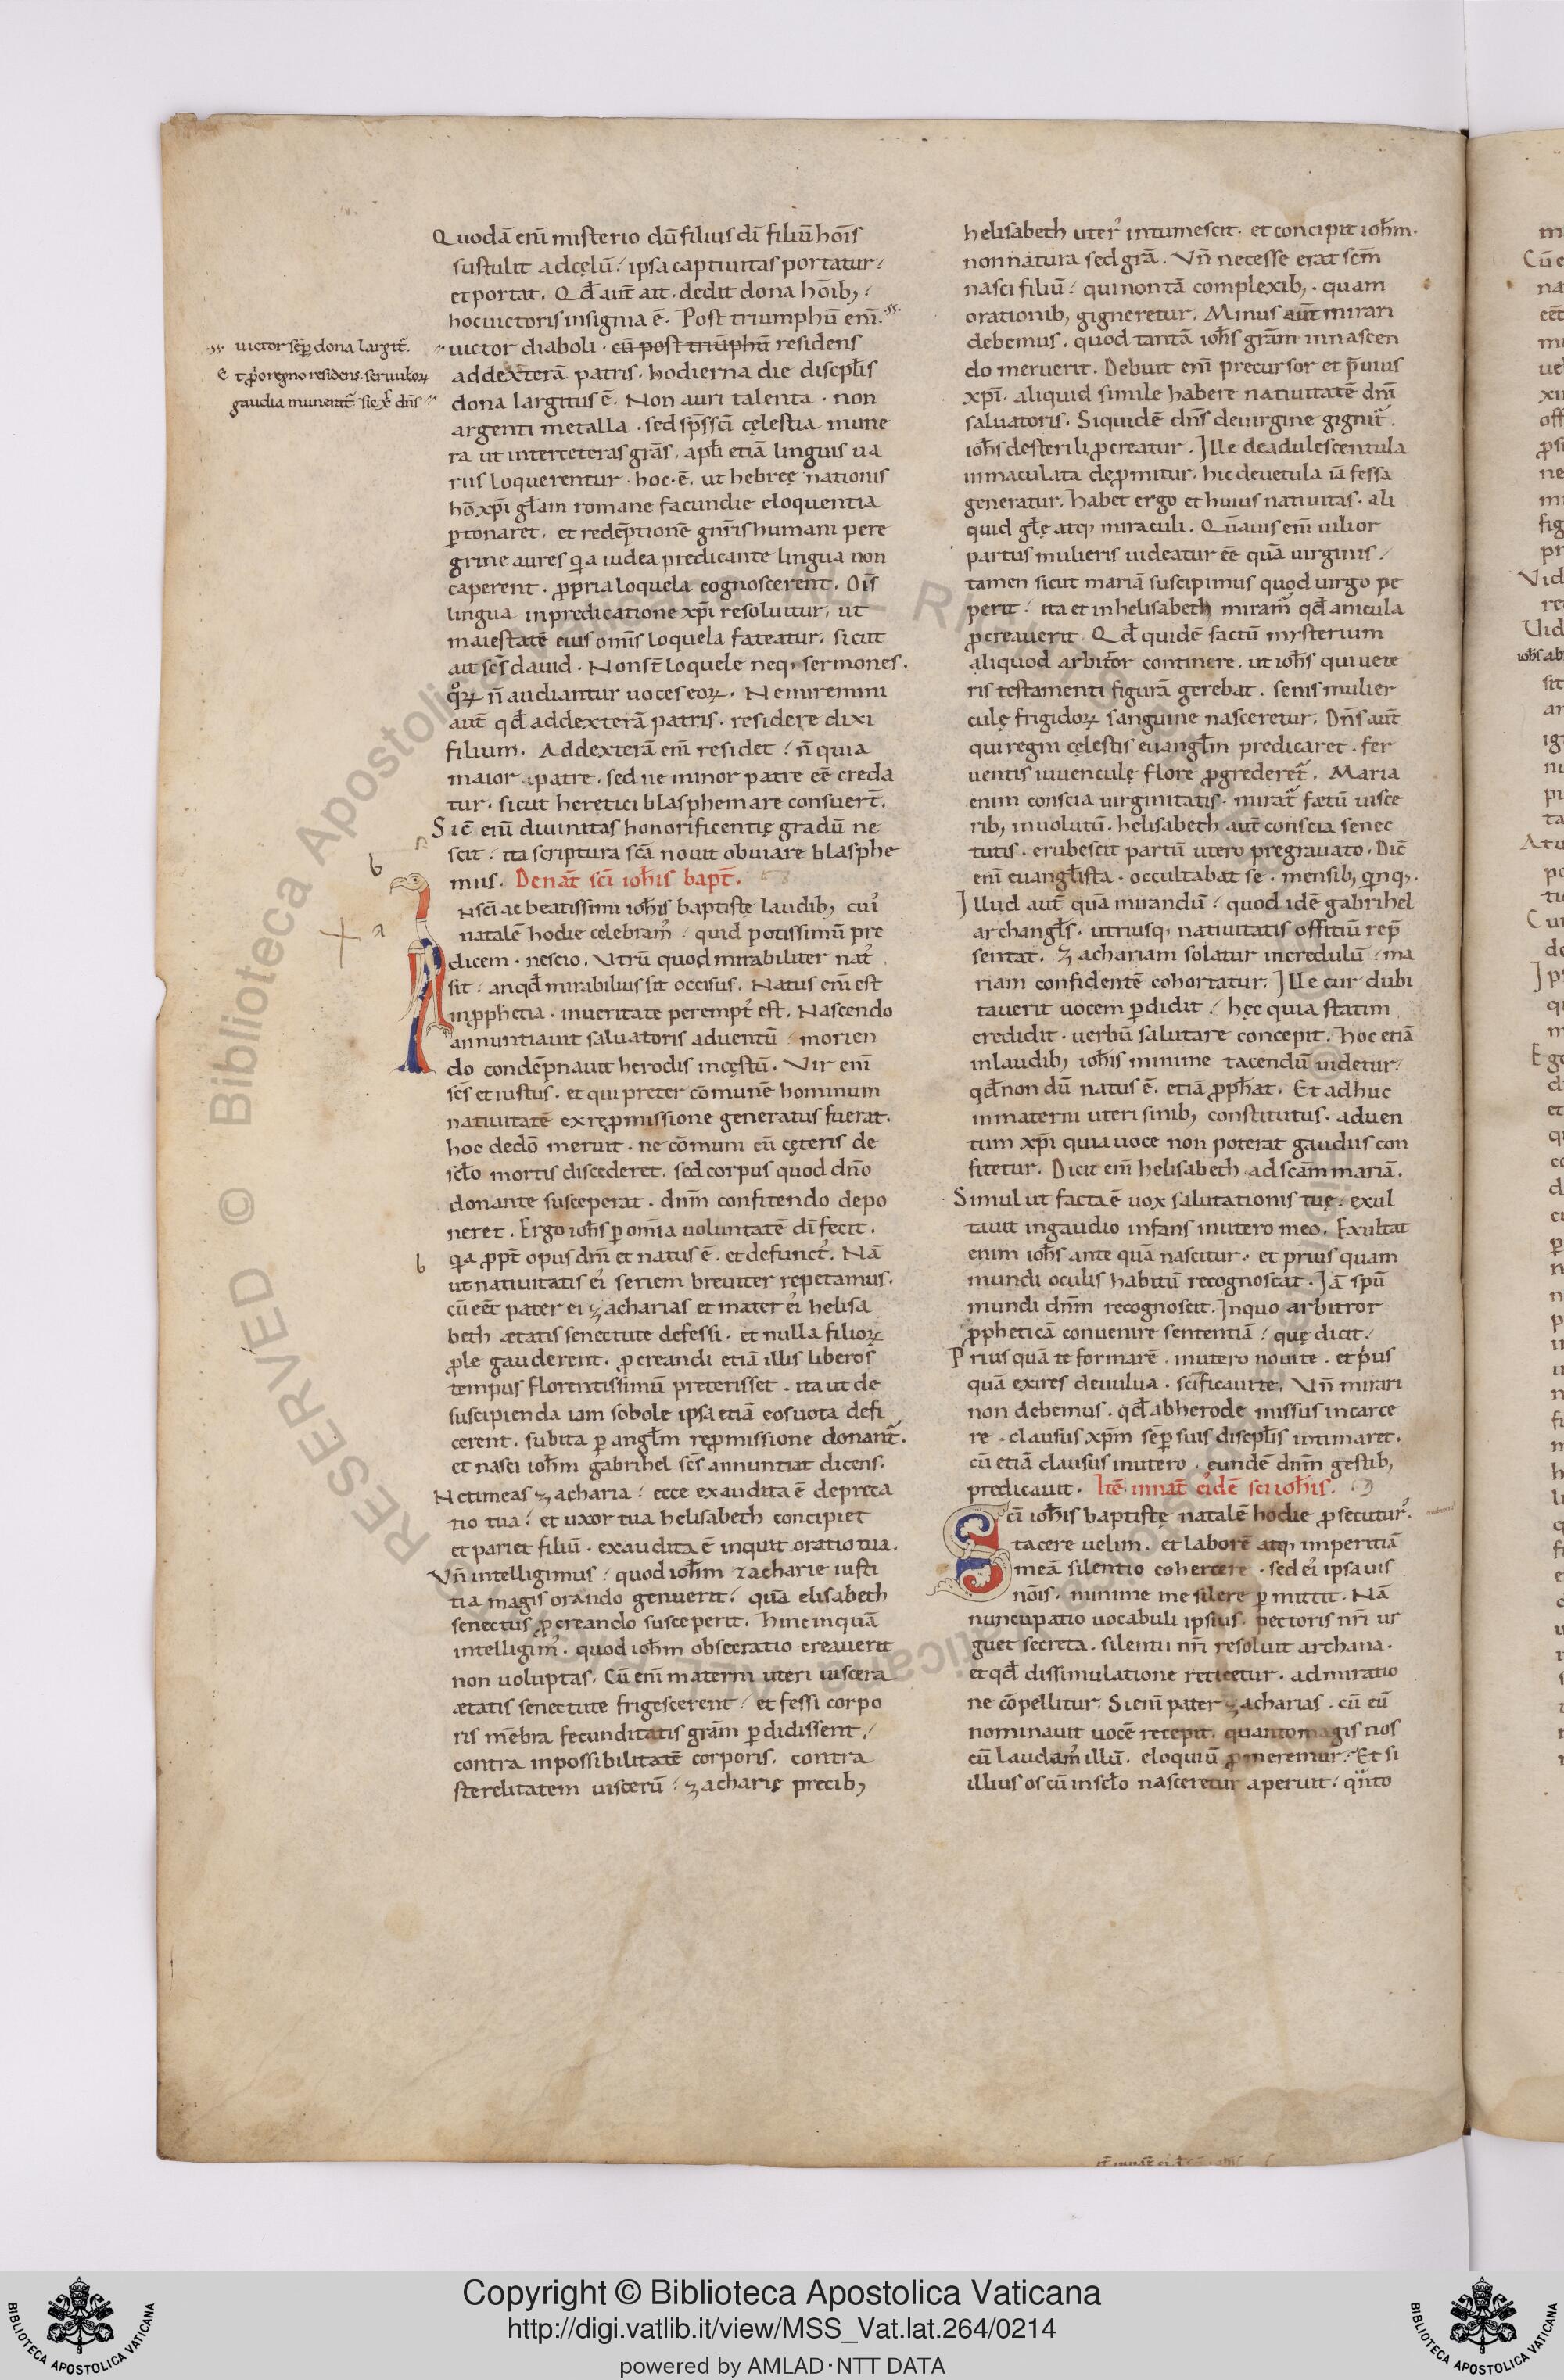 Quodā enī misterio dū filius dī filiū hoīs
sustulit ad cęlū, ipsa captivitas portatur,
et portat. Qd̄ aut̄ ait. dedit dona hoīb;,
hoc uictoris insignia ē. Post triumphū enī.
uictor sēp dona largit̄.
uictor diaboli. cū post triūphū residens
t p̄o regno residens. seruulorꝝ
ad dexterā patris. hodierna die discipl̄is
gaudia munerat̄ sic xp̄ dn̄s
dona largitus ē. Non auri talenta. non
argenti metalla. sed sp̄s sc̄i cęlestia mune
ra ut inter ceteras grās. apl̄i etiā linguis ua
riis loquerentur. hoc. ē. ut hebreę nationis
hō xp̄i gl̄am romane facundie eloquentia
ꝑtonaret. et redēptionē gn̄ris humani pere
grine aures q̇a iudea predicante lingua non
caperent. ꝓpria loquela cognoscerent. Oīs
lingua in predicatione xp̄i resoluitur. ut
maiestatē eius omīs loquela fateatur. sicut
ait sc̄s dauid. Non st̄ loquele neq; sermones.
qͦrꝝ n̄ audiantur uoces eorꝝ. Ne miremini
aut̄ qd̄ ad dexterā patris. residere dixi
filium. Ad dexterā enī residet, n̄ quia
maior patre. sed ne minor patre eē creda
tur. sicut heretici blasphemare consuert̄.
Sic̄ enī diuinitas honorificentię gradū ne
scit, ita scriptura sc̄a nouit obuiare blasphe
mus. De nat̄ sc̄i ioh̄is bapt̄.
b
In sc̄i ac beatissimi ioh̄is baptistę laudib; cui᾿
a
natalē hodie celebram᾿, quid potissimū pre
dicem. nescio. Utrū quod mirabiliter nat᾿
sit, an qd̄ mirabilius sit occisus. Natus enī est
in ꝓphetia. in ueritate perempt᾿ est. Nascendo
annuntiauit saluatoris aduentū, morien
do condēpnauit herodis incęstū. Vir enī
sc̄s et iustus. et qui preter cōmunē hominum
natiuitatē ex reꝓmissione generatus fuerat.
hoc de dō meruit. ne cōmuni cū cęteris de
scl̄o mortis discederet. sed corpus quod dn̄o
donante susceperat. dnm̄ confitendo depo
neret. Ergo ioh̄s ꝑ omīa uoluntatē dī fecit.
b
q̇a ꝓpt̄ opus dnī et natus ē. et defunct᾿. Nā
ut natiuitatis ei᾿ seriem breuiter repetamus.
cū eēt pater ei᾿ zacharias et mater ei᾿ helisa
beth ætatis senectute defessi. et nulla filiorꝝ
ꝓle gauderent. ꝓcreandi etiā illis liberos
tempus florentissimū preterisset. ita ut de
suscipienda iam sobole ipsa etiā eos uota defi
cerent. subita ꝑ angl̄m reꝓmissione donant̄.
et nasci ioh̄m gabrihel sc̄s annuntiat dicens.
Ne timeas zacharia, ecce exaudita ē depreca
tio tua, et uxor tua helisabeth concipiet
et pariet filiū. exaudita ē inquit oratio tua.
Vn̄ intelligimus, quod ioh̄m zacharie iusti
tia magis orando genuerit, quā elisabeth
senectus ꝓcreando susceperit. Hinc inquā
intelligim᾿. quod ioh̄m obsecratio creauerit
non uoluptas. Cū enī materni uteri uiscera
ætatis senectute frigescerent, et fessi corpo
ris mēbra fecunditatis grām ꝑdidissent,
contra inpossibilitatē corporis. contra
sterelitatem uiscerū, zacharię precib;
helisabeth uter᾿ intumescit. et concipit ioh̄m.
non natura sed grā. Vn̄ necesse erat scm̄
nasci filiū, qui non tā complexib;. quam
orationib; gigneretur. Minus aut̄ mirari
debemus. quod tantā ioh̄s grām in nascen
do meruerit. Debuit enī precursor et p̄uius
xp̄i. aliquid simile habere natiuitatē dnī
saluatoris. Siquidē dn̄s de uirgine gignit̄.
ioh̄s de sterili ꝓcreatur. Ille de adulescentula
inmaculata deꝓmitur. hic de uetula iā fessa
generatur. Habet ergo et huius natiuitas. ali
quid gl̄ę atq; miraculi. Qūauis enī uilior
partus mulieris uideatur eē quā uirginis,
tamen sicut mariā suscipimus quod uirgo pe
perit, ita et in helisabeth miram᾿ qd̄ anicula
ꝓcreauerit. Qd̄ quidē factū mysterium
aliquod arbitror continere. ut ioh̄s qui uete
ris testamenti figurā gerebat. senis mulier
culę frigidorꝝ sanguine nasceretur. Dn̄s aut̄
qui regni cęlestis euangl̄m predicaret. fer
uentis iuuenculę flore ꝓgrederet̄. Maria
enim conscia uirginitatis. mirat̄ fætū uisce
rib; inuolutū. helisabeth aut̄ conscia senec
tutis. erubescit partū utero pregrauato. Dic̄
enī euangl̄ista. occultabat se. mensib; qⁱnq;.
Illud aut̄ quā mirandū, quod idē gabrihel
archangl̄s. utriusq; natiuitatis offitiū rep̄
sentat. Zachariam solatur incredulū, ma
riam confidentē cohortatur. Ille cur dubi
tauerit uocem ꝑdidit, hęc quia statim
credidit. uerbū salutare concepit. Hoc etiā
in laudib; ioh̄is minime tacendū uidetur,
qd̄ non dū natus ē. etiā ꝓph̄at. Et adhuc
in materni uteri sinib; constitutus. aduen
tum xp̄i quia uoce non poterat gaudiis con
fitetur. Dicit enī helisabeth ad scām mariā.
Simul ut facta ē uox salutationis tuę, exul
tauit in gaudio infans in utero meo. Exultat
enim ioh̄s ante quā nascitur. et prius quam
mundi oculis habitū recognoscat. Iā spū
mundi dnm̄ recognoscit. In quo arbitror
ꝓpheticā conuenire sententiā, quę dicit,
Prius quā te formarē. in utero noui te. et pⁱus
quā exires de uulua. scīficaui te. Vn̄ mirari
non debemus. qd̄ ab herode missus in carce
re. clausus xp̄m sēp suis discipl̄is intimaret.
cū etiā clausus in utero. eundē dnm̄ gestib;
predicauit. Itē in nat̄ ei᾿dē sc̄i ioh̄is.
Sc̄i ioh̄is baptistę natalē hodie ꝓsecutur᾿.
tacere uelim. et laborē atq; imperitiā
meā silentio cohercere. sed ei᾿ ipsa uis
nōis. minime me silere ꝑmittit. Nā
nuncupatio uocabuli ipsius. pectoris nr̄i ur
guet secreta. silentii nr̄i resoluit archana.
et qd̄ dissimulatione reticetur. admiratio
ne cōpellitur. Si enī pater zacharias. cū eū
nominauit uocē recepit. quanto magis nos
cū laudam᾿ illū. eloquiū ꝓmeremur. Et si
illius os cū in scl̄o nasceretur aperuit. qᵃnto
RESERVED © Biblioteca Apostolica Vaticana ALL RIGHTS
Copyright © Biblioteca Apostolica Vaticana
http://digi.vatlib.it/view/MSS_Vat.lat.264/0214
powered by AMLAD·NTT DATA
BIBLIOTECA APOSTOLICA VATICANA
BIBLIOTECA APOSTOLICA VATICANA